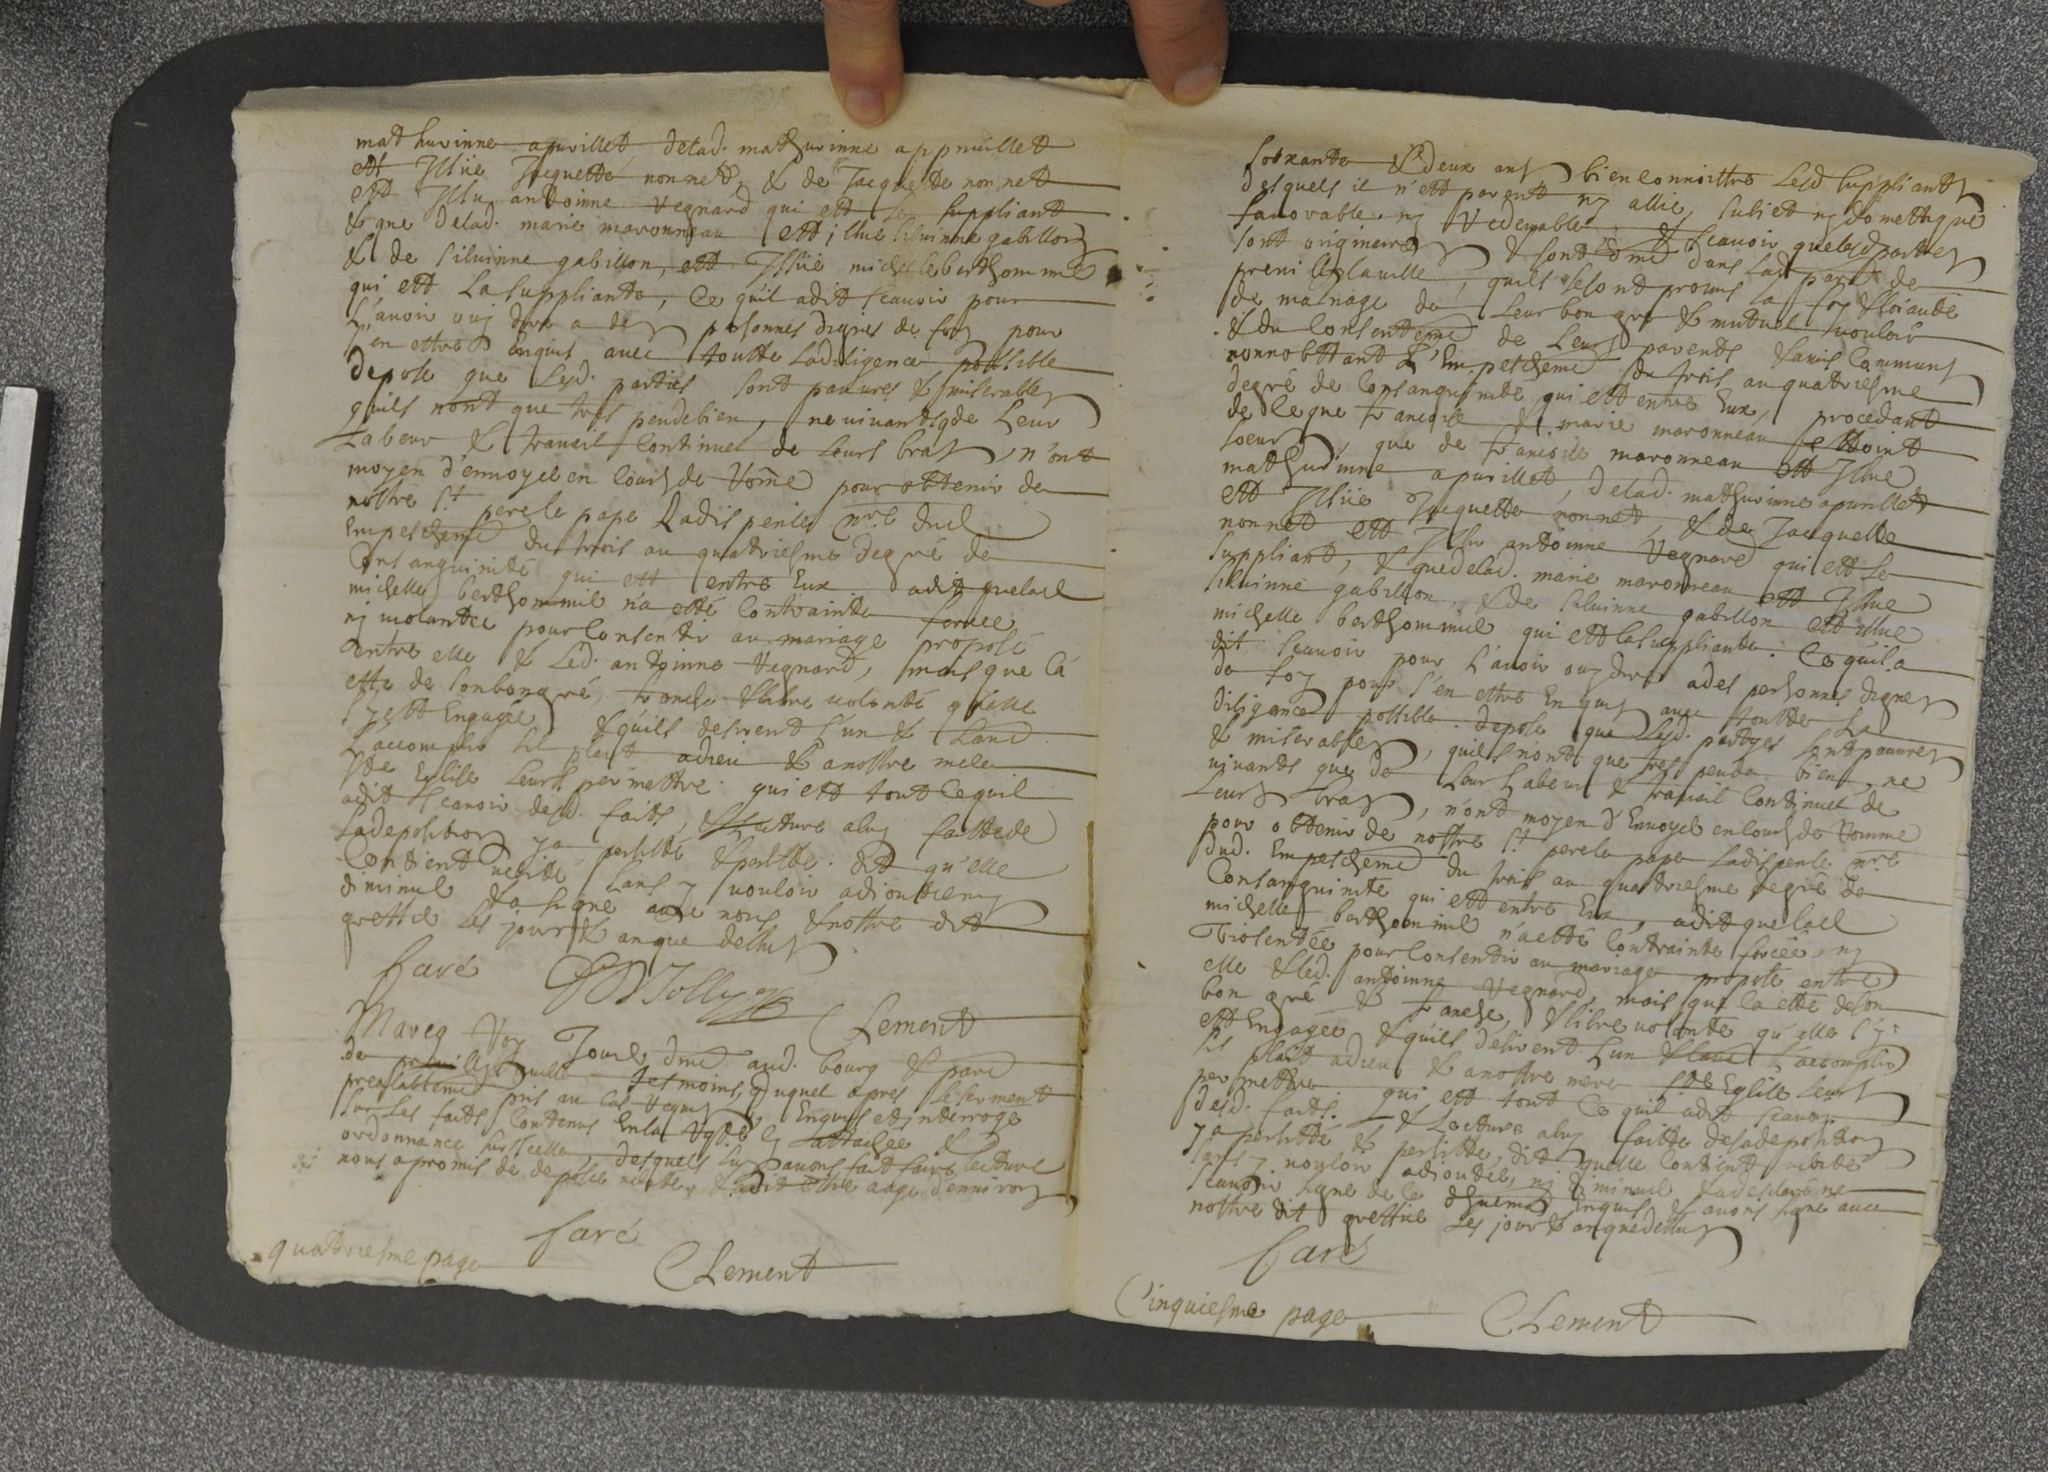 mathurinne apurillet, delad. mathurinne appruillet
est Issüe Jacquette nonnet, & de Jacquette nonnet
est Issu antoinne Regnard qui est le suppliant
& que delad. marie maronneau est issue siluinne gabillon
& de siluinne gabillon, est Issüe michelle berthommié
qui est La suppliante, Ce qu'il a dit scauoir pour
L'auoir ouy dire a des personnes dignes de foy pour
s'en estre Enquis auec toutte La diligence possible
depose que Lesd. parties sont pauures & miserables
qu'ils n'ont que tres peu de bien, ne uiuants q de Leur
Labeur & trauail Continuel de Leurs bras, n'ont
moyen d'enuoyer en Cour de Rome pour obtenir de
nostre st pere le pape La dispense nre dud
Empeschemt du trois au quatriesme degré de
Consanguinité qui est entre Eux adit que lad
michelle berthommié n'a esté Contrainte forcée
nj uiolantée pour Consentir au mariage proposé
entre elle & Led. antoinne Regnard, mais que C'a
esté de son bon gré, franche & libre uolonté qu'elle
s'y est Engagée & qu'ils desirent L'un & L'autre
L'accomplir s'il plaist a dieu & a nostre mere
ste Eglise Leurs permettre. qui est tout Ce qu'il
a dit scauoir desd. faits, & Lecture a luy faitte de
sa deposition y a persisté & persiste. dit qu'elle
Contient uerité sans y uouloir adiouster ny
diminuer & a signé auec nous & nostre dit
greffier Les jour & an que dessus
Faré Jolly Clement
Du
preallablemt pris au Cas Requis Enquis et interrogé
sur Les faits Contenus En La Rqte Cy attachée &
ordonnance sur Icelle, desquels luy auons fait faire lecture
nous a promis de deposer uerité, & a dit estre aagé d'enuiron
Faré
quatriesme page Clement
soixante & deux ans, bien Connoistre Lesd suppliants
desquels il n'est parent ny allié, subiet ny domestique
fauorable ny Redeuable & scauoir que lesd parties
sont originaires & sont dmt dans Lad parr de
preuilleslauille, qu'ils se sont promis La foy & loiauté
de mariage de Leur bon gré & mutuel uouloir
& du Consentemt de Leurs parents & amis Communs
nonnobstant L'Empeschemt du trois au quatriesme
degré de Consanguinité qui est entre Eux, procedant
de Ce que francoise & marie maronneau estoint
soeurs, que de francoise maronneau est Issue
mathurinne apurillet, delad. mathurinne apurillet
est Issüe Jacquette nonnet, & de Jacquette
nonnet est Issu antoinne Regnard qui est Le
suppliant, & que delad. marie maronneau est Issue
siluinne gabillon, & de siluinne gabillon est issue
michelle berthommié qui est la suppliante. Ce qu'il a
dit scauoir pour L'auoir ouy dire a des personnes dignes
de foy pour s'en estre Enquis auec toutte La
diligence possible. depose que Lesd. partyes sont pauures
& miserables, qu'ils n'ont que tres peu de bien, ne
uiuants que de Leur Labeur & trauail Continuel de
Leurs bras, n'ont moyen d'Enuoyer en Cour de Romme
pour obtenir de nostre st pere le pape La dispense nre
dud. Empeschemt du trois au quatriesme degré de
Consanguinité qui est entre Eux, adit que lad
michelle berthommié n'a esté Contrainte forcée ny
Violentée pour Consentir au mariage proposé entre
elle & led. antoinne Regnard, mais que C'a esté de son
bon gré & franche, & libre uolonté qu'elle s'y
est Engagée & qu'ils desirent L'un & L'autre L'accomplir
s'il plaist a dieu & a nostre mere ste Eglise Leurs
permettre qui est tout Ce qu'il a dit scauoir
desd. faits. & Lecture a luy faitte de sa deposition
y a persisté & persiste, dit qu'elle Contient uerité
sans y uouloir adiouster, ny diminuer & a declaré ne
scauoir signer de Ce Enquis & auons signé auec
nostre dit greffier Les jour & an que dessus
Faré
Cinquiesme page Clement